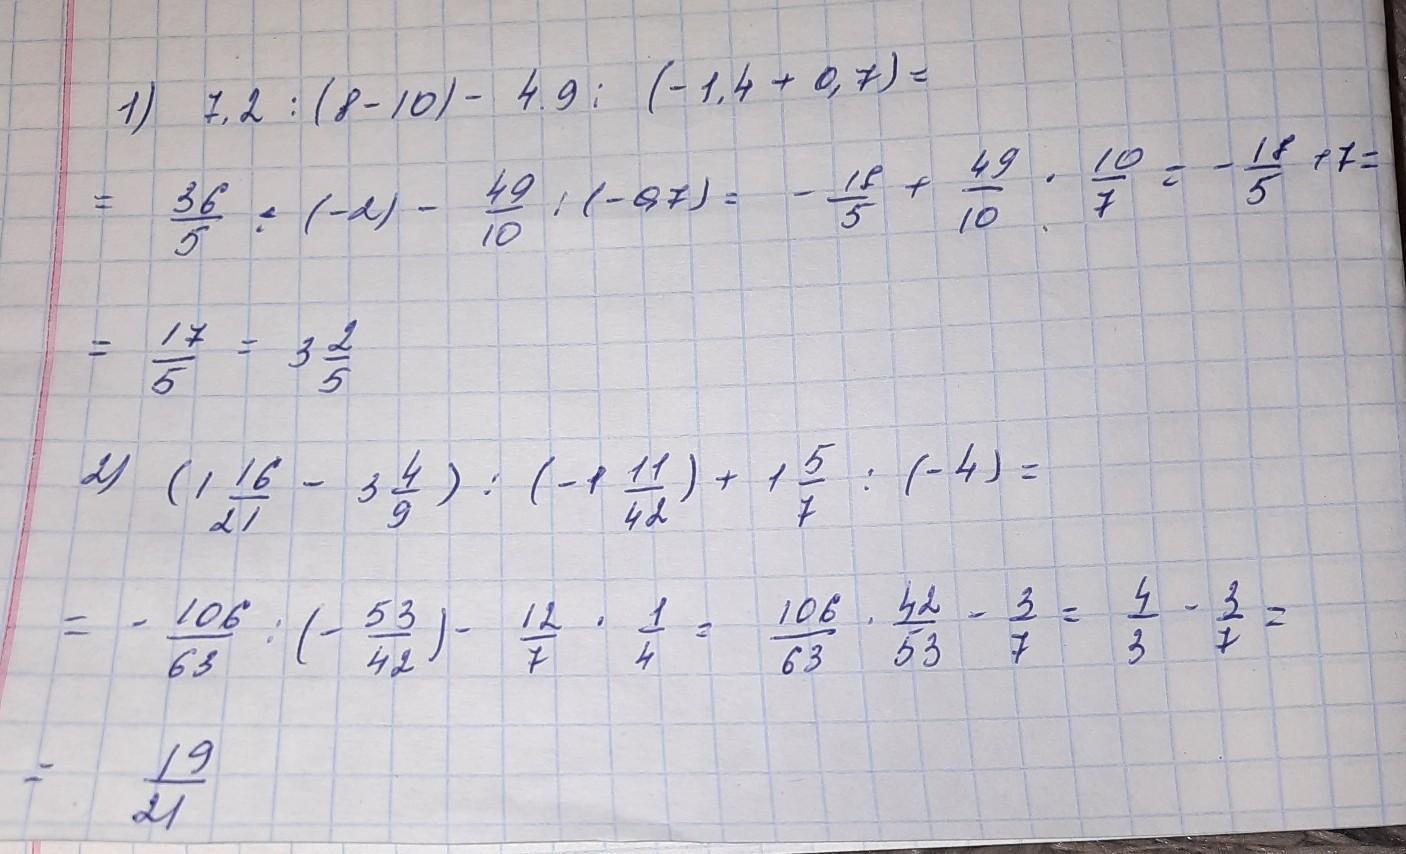 1) 7,2 : (8-10) - 4.9 : (-1,4 + 0,7) =
= 36/5 : (-2) - 49/10 : (-0,7) = - 18/5 + 49/10 · 10/7 = - 18/5 + 7 =
= 17/5 = 3 2/5
2) (1 16/21 - 3 4/9) : (-1 11/42) + 1 5/7 : (-4) =
= - 106/63 : (- 53/42) - 12/7 · 1/4 = 106/63 · 42/53 - 3/7 = 4/3 - 3/7 =
= 19/21